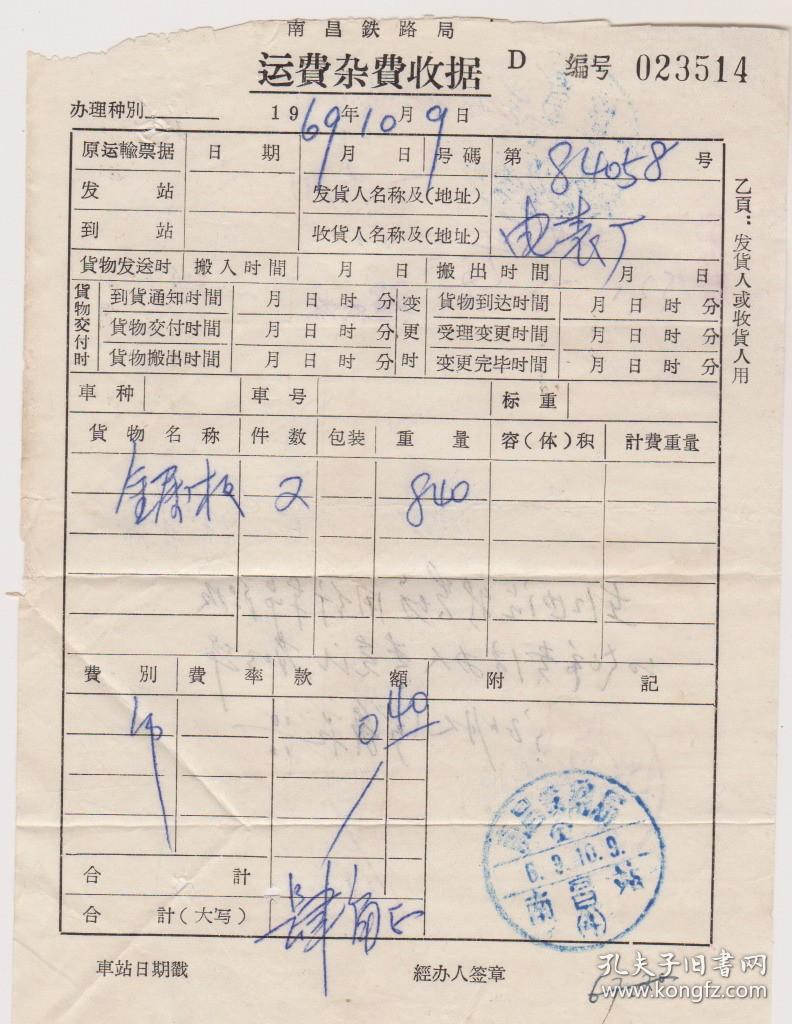 南昌鉄路局
运費杂費收据 D 编号 023514
办理种別 1969年10月9日
原运輸票据 日期 月 日 号碼 第 84058 号
发站 发貨人名称及(地址)
到站 收貨人名称及(地址) 电表厂
貨物发送时 搬入时間 月 日 搬出时間 月 日
貨物交付时 到貨通知时間 月 日 时 分 变更时 貨物到达时間 月 日 时 分
貨物交付时間 月 日 时 分 受理变更时間 月 日 时 分
貨物搬出时間 月 日 时 分 变更完毕时間 月 日 时 分
車种 車号 标重
貨物名称 件数 包装 重量 容(体)积 計費重量
金属板 2 840
費別 費率 款額 附記
0 40
合計
合計(大写) 肆角正
車站日期戳 經办人签章
乙頁：发貨人或收貨人用
南昌鉄路局
6.9.10.9.
南昌站
(4)
孔夫子旧书网
www.kongfz.com